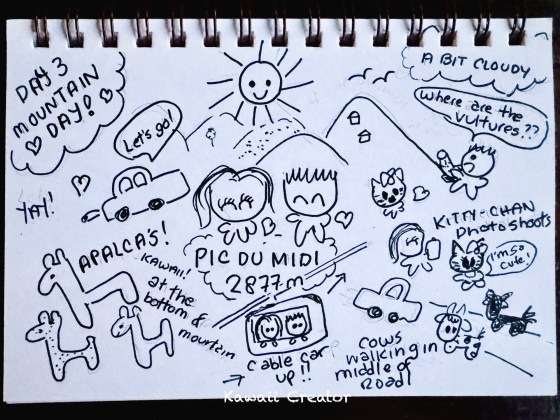 DAY 3
MOUNTAIN
DAY!
A BIT CLOUDY
Where are the
vultures??
Let's go!
YAY!
KITTY-CHAN
photoshoots
I'm so
cute!
APALCA'S!
KAWAII!
at the
bottom of
mountain
PIC DU MIDI
2877m
cable car
up!!
COWS
walking in
middle of
ROAD!
Kawaii Creator